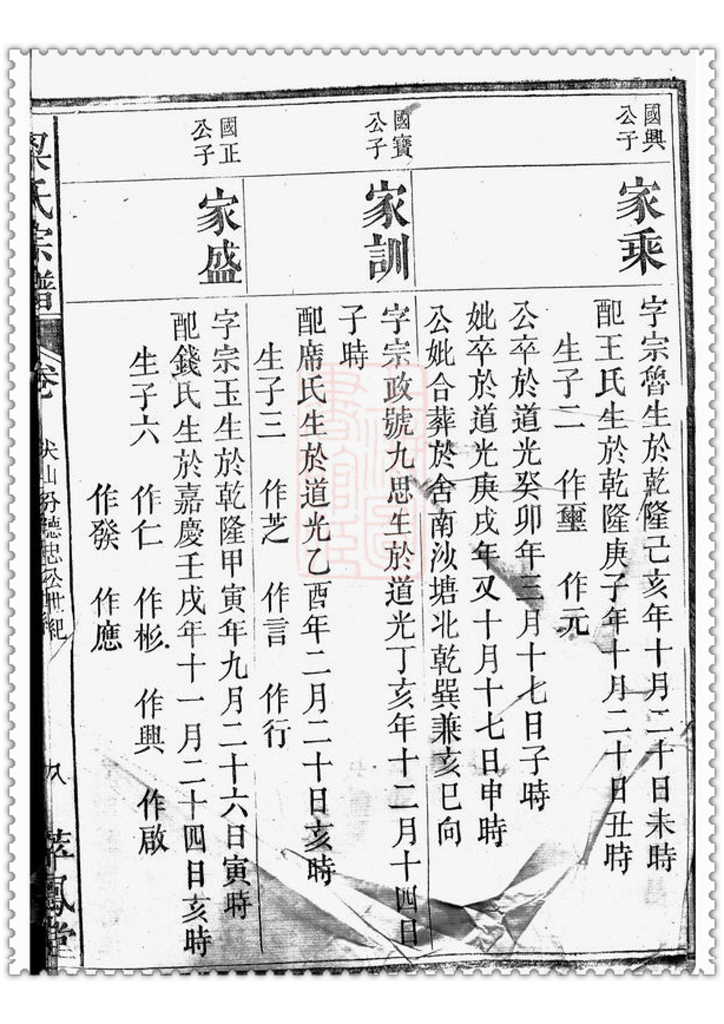 國興
公子
家乘
字宗魯生於乾隆己亥年十月二十日未時
配王氏生於乾隆庚子年十月二十日丑時
生子二 作璽 作元
公卒於道光癸卯年三月十七日子時
妣卒於道光庚戌年又十月十七日申時
公妣合葬於舍南沙塘北乾巽兼亥巳向
國寶
公子
家訓
字宗政號九思生於道光丁亥年十二月十四日
子時
配席氏生於道光乙酉年二月二十日亥時
生子三 作芝 作言 作行
國正
公子
家盛
字宗玉生於乾隆甲寅年九月二十六日寅時
配錢氏生於嘉慶壬戌年十一月二十四日亥時
生子六 作仁 作彬 作興 作啟
作發 作應
梁氏宗譜
卷
尖山分德忠公世紀
九
萃鳳堂